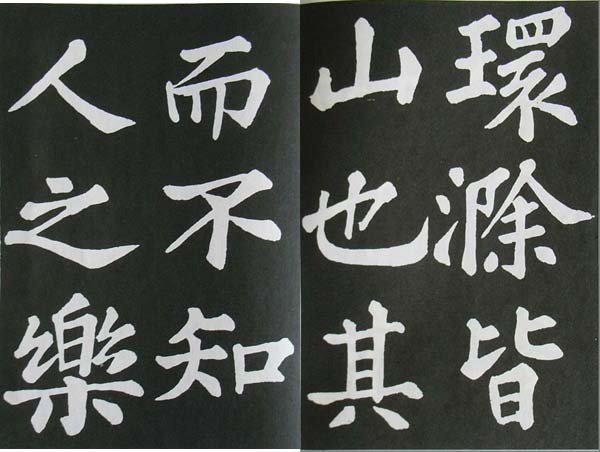 環滁皆
山也其
而不知
人之樂